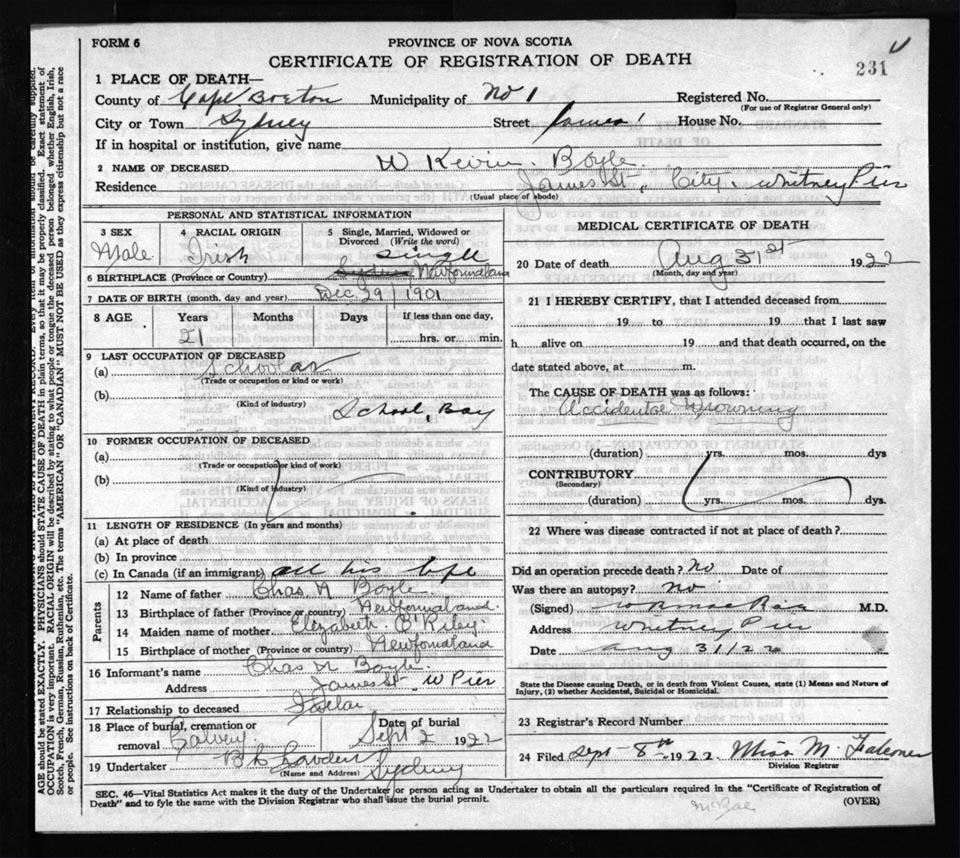 FORM 6
PROVINCE OF NOVA SCOTIA
CERTIFICATE OF REGISTRATION OF DEATH
231
1 PLACE OF DEATH—
County of Cape Breton Municipality of No 1 Registered No.
(For use of Registrar General only)
City or Town Sydney Street James House No.
If in hospital or institution, give name
2 NAME OF DECEASED W Kevin Boyle
Residence James St, City. Whitney Pier
(Usual place of abode)
PERSONAL AND STATISTICAL INFORMATION
3 SEX
Male
4 RACIAL ORIGIN
Irish
5 Single, Married, Widowed or Divorced (Write the word)
Single
6 BIRTHPLACE (Province or Country) Sydney Newfoundland
7 DATE OF BIRTH (month, day and year) Dec 29/1901
8 AGE Years Months Days If less than one day,
21 hrs. or min.
9 LAST OCCUPATION OF DECEASED
(a) Schoolar
(Trade or occupation or kind or work)
(b)
(Kind of industry)
School Boy
10 FORMER OCCUPATION OF DECEASED
(a)
(Trade or occupation or kind of work)
(b)
(Kind of industry)
11 LENGTH OF RESIDENCE (In years and months)
(a) At place of death
(b) In province
(c) In Canada (if an immigrant) all his life
Parents
12 Name of father Chas A Boyle
13 Birthplace of father (Province or country) Newfoundland.
14 Maiden name of mother Elizabeth O'Riley.
15 Birthplace of mother (Province or country) Newfoundland
16 Informant's name Chas A Boyle.
Address James St W Pier
17 Relationship to deceased
18 Place of burial, cremation or removal
Date of burial
Sept 2 1922
19 Undertaker
(Name and Address) Sydney
MEDICAL CERTIFICATE OF DEATH
20 Date of death Aug 31st 1922
(Month, day and year)
21 I HEREBY CERTIFY, that I attended deceased from
19 to 19 that I last saw
h alive on 19 and that death occurred, on the
date stated above, at m.
The CAUSE OF DEATH was as follows:
Accidental Drowning
(duration) yrs. mos. dys
CONTRIBUTORY
(Secondary)
(duration) yrs. mos. dys.
22 Where was disease contracted if not at place of death?
Did an operation precede death? No Date of
Was there an autopsy? No
(Signed) M.D.
Address Whitney Pier
Date Aug 31/22
State the Disease causing Death, or in death from Violent Causes, state (1) Means and Nature of
Injury, (2) whether Accidental, Suicidal or Homicidal.
23 Registrar's Record Number
24 Filed Sept 8th 1922 Miss M. Falconer
Division Registrar
SEC. 46—Vital Statistics Act makes it the duty of the Undertaker or person acting as Undertaker to obtain all the particulars required in the "Certificate of Registration of
Death" and to fyle the same with the Division Registrar who shall issue the burial permit.
(OVER)
AGE should be stated EXACTLY. PHYSICIANS should STATE CAUSE OF DEATH in plain terms, so that it may be properly classified. Exact statement of
OCCUPATION is very important. RACIAL ORIGIN will be described by stating to what people or tongue the deceased person belonged whether English, Irish,
Scotch, French, German, Russian, Ruthenian, etc. The terms "AMERICAN" OR "CANADIAN" MUST NOT BE USED as they express citizenship but not a race
or people. See instructions on back of Certificate.